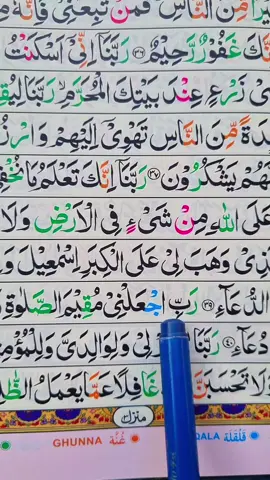 مِّنَ النَّاسِ ۚ فَمَنْ تَبِعَنِيْ فَاِنَّهٗ
غَفُوْرٌ رَّحِيْمٌ ﴿۳۶﴾ رَبَّنَاۤ اِنِّيْۤ اَسْكَنْتُ
ذِيْ زَرْعٍ عِنْدَ بَيْتِكَ الْمُحَرَّمِ ۙ رَبَّنَا
مِّنَ النَّاسِ تَهْوِيْۤ اِلَيْهِمْ وَارْزُ
يَشْكُرُوْنَ ﴿۳۷﴾ رَبَّنَاۤ اِنَّكَ تَعْلَمُ مَا نُخْفِ
عَلَى اللّٰهِ مِنْ شَيْءٍ فِي الْاَرْضِ وَلَا
ذِيْ وَهَبَ لِيْ عَلَى الْكِبَرِ اِسْمٰعِيْلَ وَ
الدُّعَآءِ ﴿۳۹﴾ رَبِّ اجْعَلْنِيْ مُقِيْمَ الصَّلٰوةِ
دُعَآءِ ﴿۴۰﴾ رَبَّنَا لِيْ وَلِوَالِدَيَّ وَلِلْمُؤْمِ
وَلَا تَحْسَبَنَّ غَافِلًا عَمَّا يَعْمَلُ الظّٰ
منزل ۳
GHUNNA غُنَّة QALA قَلْقَلَة